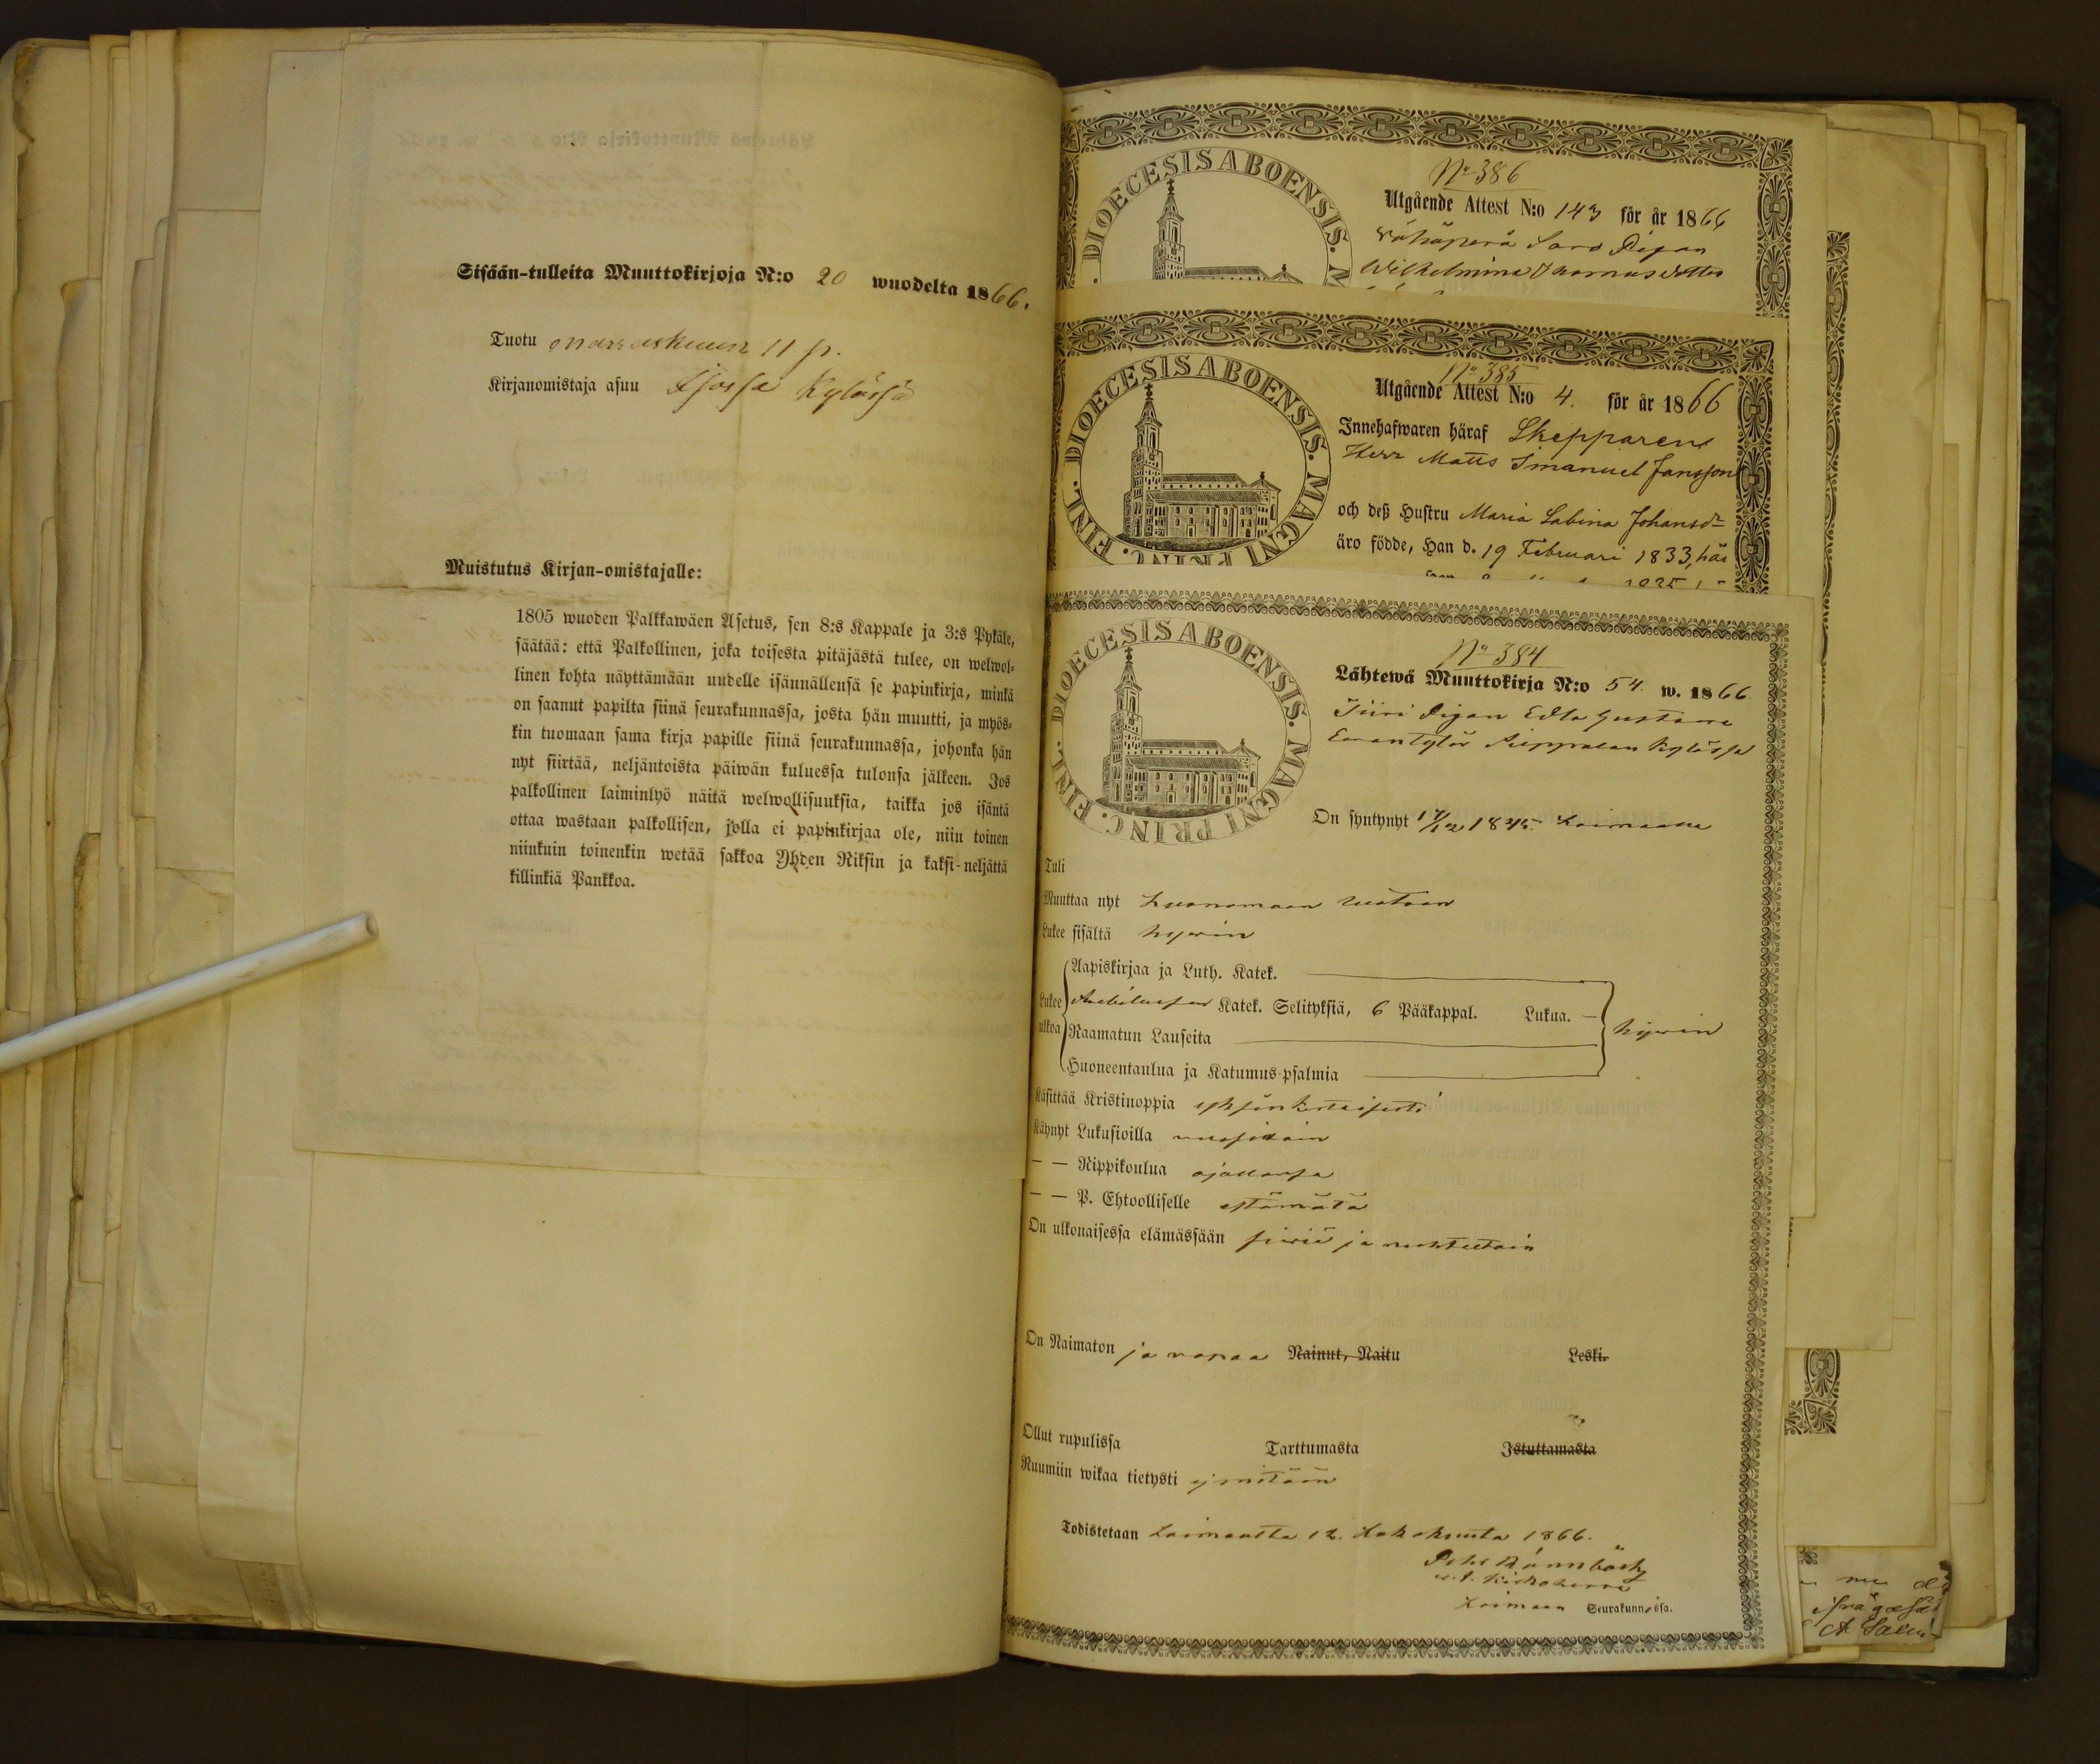 Sisään-tulleita Muuttokirjoja N:o 20 wuodelta 1866.
Tuotu marraskuun 11 p.
Kirjanomistaja asuu Kylässä
Muistutus Kirjan-omistajalle:
1805 wuoden Palkkawäen Asetus, sen 8:s Kappale ja 3:s Pykäle,
säätää: että Palkollinen, joka toisesta pitäjästä tulee, on welwol-
linen kohta näyttämään uudelle isännällensä se papinkirja, minkä
on saanut papilta siinä seurakunnassa, josta hän muutti, ja myös-
kin tuomaan sama kirja papille siinä seurakunnassa, johonka hän
nyt siirtää, neljäntoista päiwän kuluessa tulonsa jälkeen. Jos
palkollinen laiminlyö näitä welwollisuuksia, taikka jos isäntä
ottaa wastaan palkollisen, jolla ei papinkirjaa ole, niin toinen
niinkuin toinenkin wetää sakkoa Yhden Riksin ja kaksi-neljättä
killinkiä Pankkoa.
DIOECESIS ABOENSIS. M
No 386
Utgående Attest N:o 143 för år 1866
Pigan
Wilhelmina Thomasdotter
FINL. DIOECESIS ABOENSIS. MAGNI PRINC.
No 385
Utgående Attest N:o 4. för år 1866
Innehafwaren häraf Skepparen
Herr Matts Imanuel Jansson
och deß Hustru Maria Sabina Johansdr
äro födde, Han d. 19 Februari 1833, här
FINL. DIOECESIS ABOENSIS. MAGNI PRINC.
No 384
Lähtewä Muuttokirja N:o 54. w. 1866
Piian Edla Gustawa
Kylässä
On syntynyt 17/12 1845. Loimaalla
Tuli
Muuttaa nyt
Lukee sisältä hywin
Aapiskirjaa ja Luth. Katek.
Lukee Katek. Selityksiä, 6 Pääkappal. Lukua. hywin
ulkoa Raamatun Lauseita
Huoneentaulua ja Katumus-psalmia
Käsittää Kristinoppia yksinkertaisesti
Käynyt Lukusioilla wuosittain
— — Rippikoulua ajallansa
— — P. Ehtoolliselle estämätä
On ulkonaisessa elämässään siwiä ja nuhteetoin
On Naimaton ja wapaa Nainut, Naitu Leski.
Ollut rupulissa Tarttumasta Istuttamasta
Ruumiin wikaa tietysti ej mitään
Todistetaan Loimaalla 12. Lokakuuta 1866.
w.t. Kirkoherra
Loimaan Seurakunnassa.